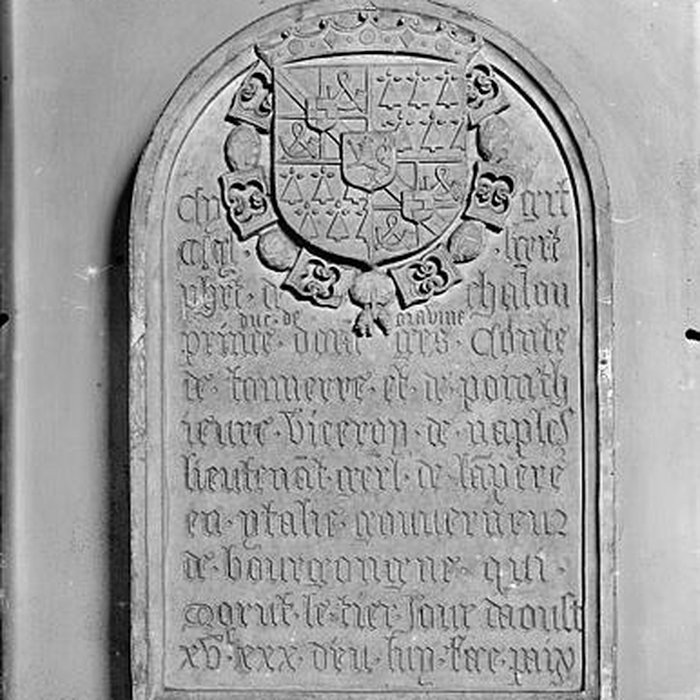 Cy git
phrt · d chalon
duc · de gravine
prince · doranges · Conte
de · tonnerre · et · de · pointh
ieure · Viceroy · de · naples
lieutenāt · gēēl · de · lāpere
en · ytalie · gouverneur
de · bourgongne · qui ·
morut · le · tier · Jour daoust
xvᶜ xxx · dieu · luy · face · paix